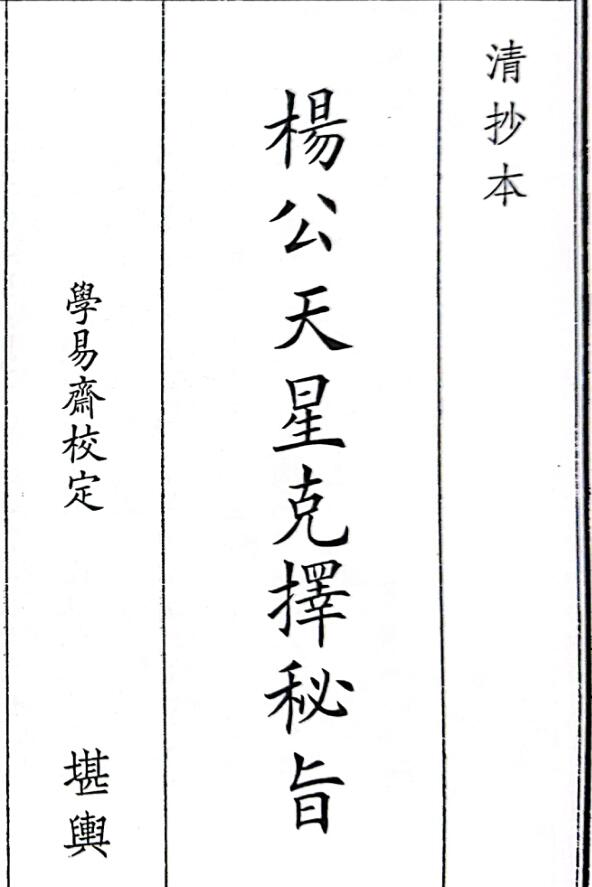 清抄本
楊公天星克擇秘旨
學易齋校定
堪輿